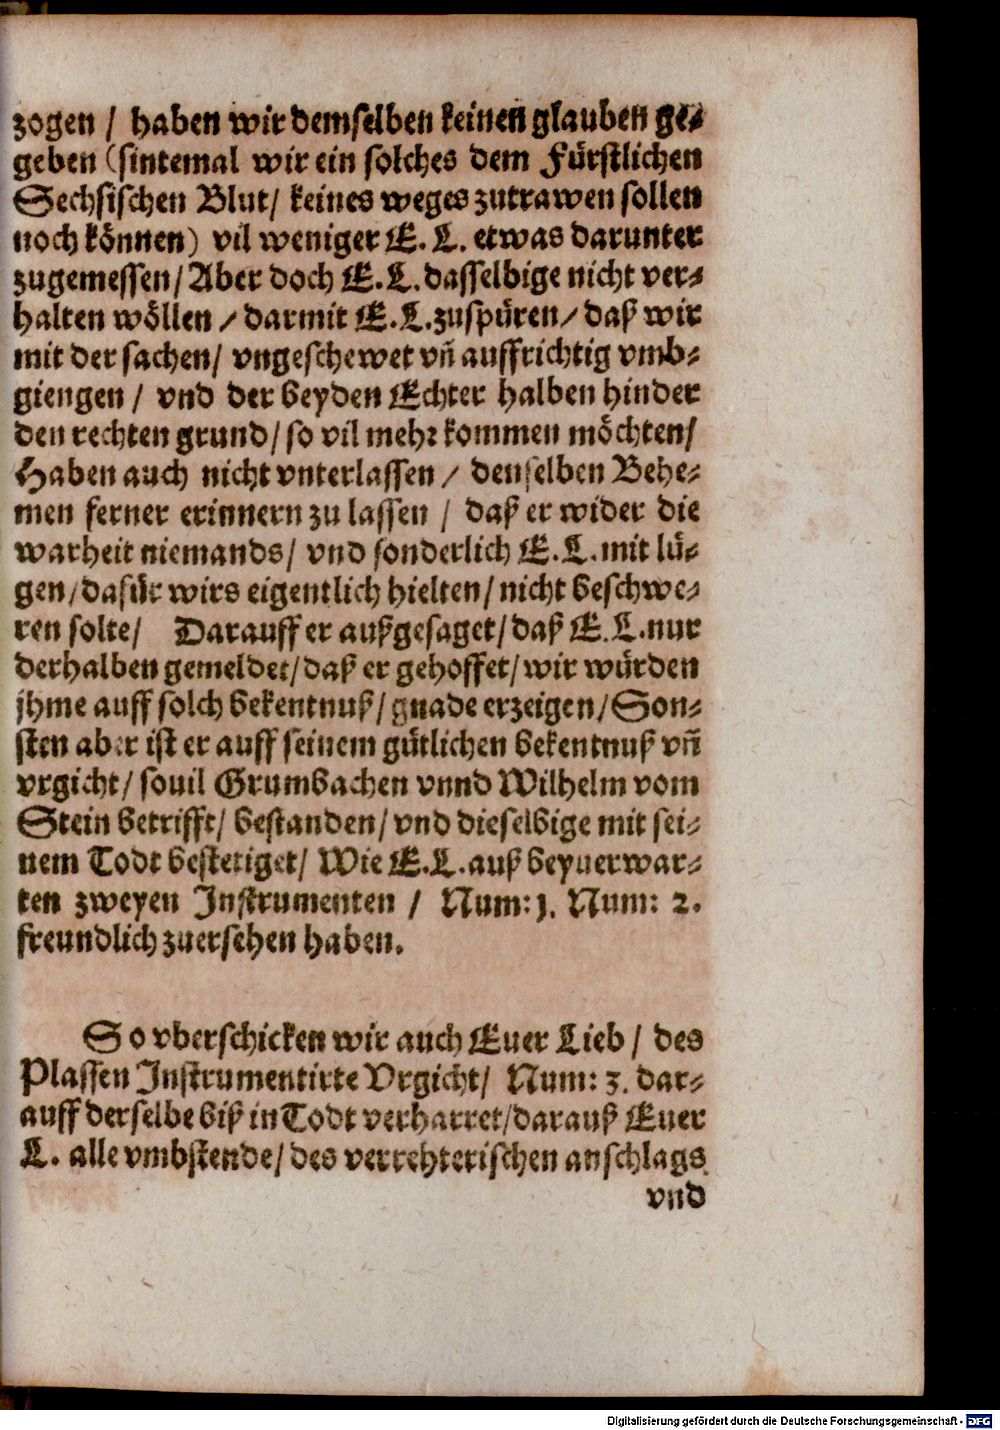 zogen / haben wir demselben keinen glauben ge-
geben (sintemal wir ein solches dem Fürstlichen
Sechsischen Blut/ keines weges zutrawen sollen
noch können) vil weniger E. L. etwas darunter
zugemessen/ Aber doch E. L. dasselbige nicht ver-
halten wöllen / darmit E. L. zuspüren/ daß wir
mit der sachen/ vngeschewet vñ auffrichtig vmb-
giengen / vnd der beyden Echter halben hinder
den rechten grund/ so vil mehr kommen möchten/
Haben auch nicht vnterlassen / denselben Behe-
men ferner erinnern zu lassen / daß er wider die
warheit niemands/ vnd sonderlich E. L. mit lü-
gen/ dafür wirs eigentlich hielten/ nicht beschwe-
ren solte/ Darauff er außgesaget/ daß E. L. nur
derhalben gemeldet/ daß er gehoffet/ wir würden
jhme auff solch bekentnuß/ gnade erzeigen/ Son-
sten aber ist er auff seinem gütlichen bekentnuß vñ
vrgicht/ souil Grumbachen vnnd Wilhelm vom
Stein betrifft/ bestanden/ vnd dieselbige mit sei-
nem Todt bestetiget/ Wie E. L. auß beyuerwar-
ten zweyen Instrumenten / Num: 1. Num: 2.
freundlich zuersehen haben.
So vberschicken wir auch Euer Lieb / des
Plassen Instrumentirte Vrgicht/ Num: 3. dar-
auff derselbe biß in Todt verharret/ darauß Euer
L. alle vmbstende/ des verrehterischen anschlags
vnd
Digitalisierung gefördert durch die Deutsche Forschungsgemeinschaft - DFG